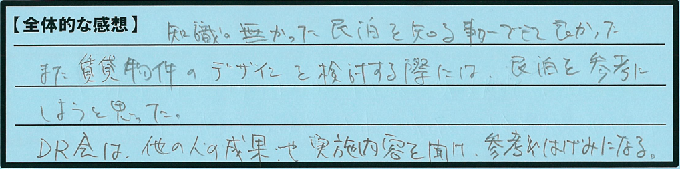 【全体的な感想】 知識の無かった民泊を知る事ができて良かった
また賃貸物件のデザインを検討する際には、民泊を参考に
しようと思った。
DR会は、他の人の成果や実施内容を聞け、参考やはげみになる。